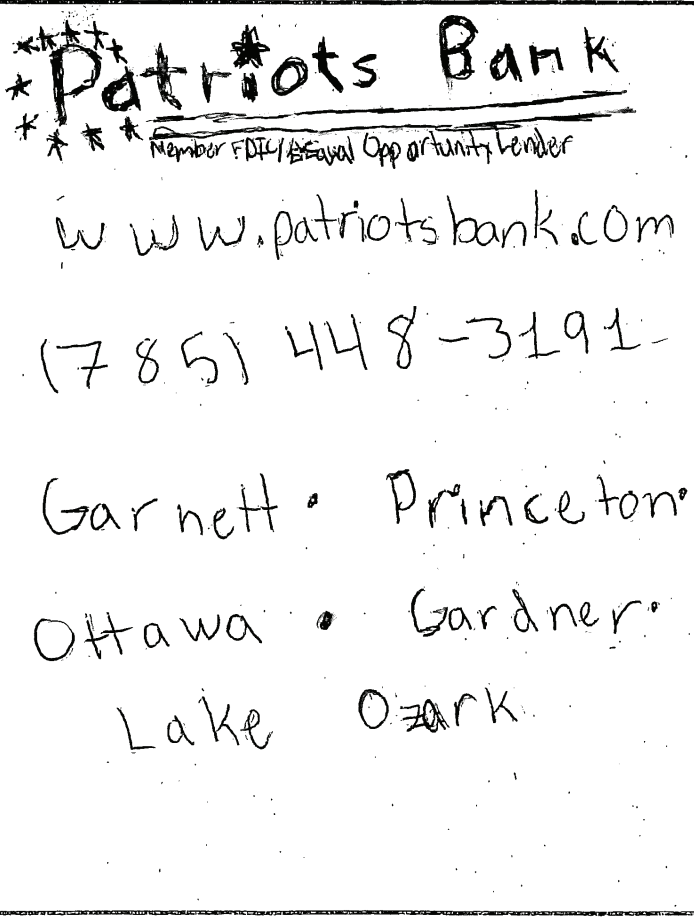 Patriots Bank
Member FDIC/Equal Opportunity Lender
www.patriotsbank.com
(785) 448-3191
Garnett • Princeton •
Ottawa • Gardner •
Lake Ozark